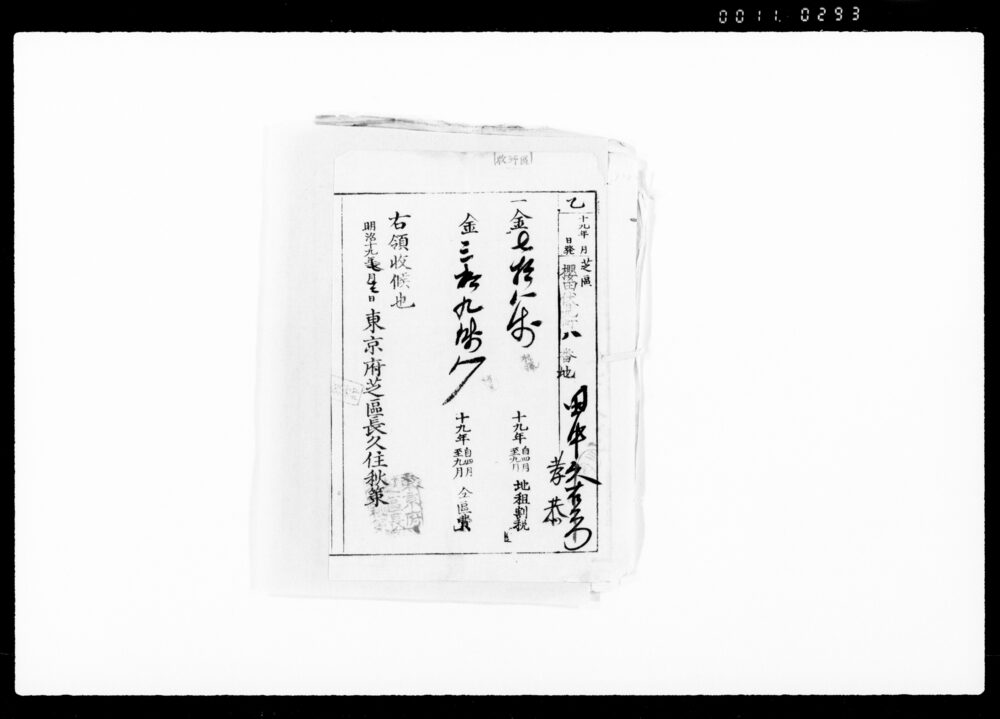 0011. 0293
乙
十九年 月 日発
芝區
櫻田 八番地
田中久右衛門
孝恭
一金七拾八銭
十九年自四月至九月 地租割税
金三拾九銭八リ
十九年自四月至九月 仝區費
右領收候也
明治十九年七月 日
東京府芝區長久住秋策